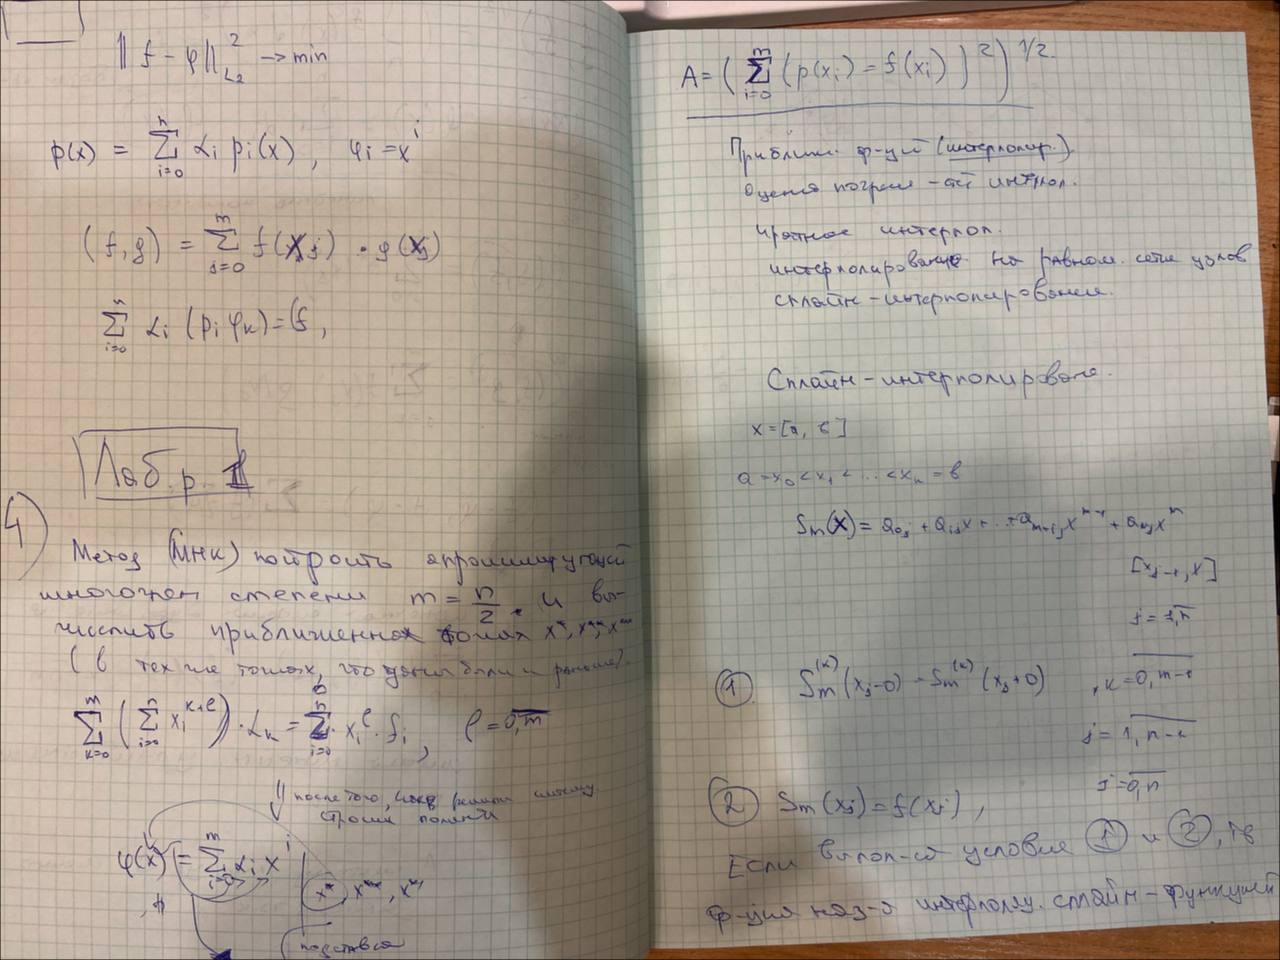 ‖f - φ‖²_{L₂} → min
p(x) = Σ_{i=0}^{n} αᵢ pᵢ(x), φᵢ = xⁱ
(f, g) = Σ_{j=0}^{m} f(xⱼ) · g(xⱼ)
Σ_{i=0}^{n} αᵢ (pᵢ φₖ) = (f,
Лаб. р. 1
4)
Метод (МНК) построить апроксимирующий
многочлен степени m = n/2. и вы-
числить приближенно в точках x*, x**, x***
(в тех же точках, что были и раньше).
Σ_{k=0}^{m} (Σ_{i=0}^{n} xᵢ^{k+l}) · αₖ = Σ_{i=0}^{n} xᵢ^l · fᵢ, l = 0,m
после того, как решили систему
строим полином
φ(x) = Σ_{i=0}^{m} αᵢ xⁱ
x*, x**, x***
A = (Σ_{i=0}^{m} (p(xᵢ) = f(xᵢ))²)^{1/2}.
Приближ. ф-ций (интерполир.).
Оценка погреш-сти интерпол.
кратное интерпол.
интерполирование на равном. сетке узлов
сплайн-интерполирование.
Сплайн-интерполирование.
x = [a, b]
a = x₀ < x₁ < ... < xₙ = b
Sₘ(x) = a₀ⱼ + a₁ⱼx + ... + aₘ₋₁ⱼ x^{m-1} + aₘⱼ x^m
[xⱼ₋₁, x]
j = 1,n
① Sₘ^{(k)}(xⱼ-0) = Sₘ^{(k)}(xⱼ+0), k = 0,m-1
j = 1,n-1
② Sₘ(xⱼ) = f(xⱼ), j = 0,n
Если выпол-ся условия ① и ②, то
ф-ция наз-я интерполяц. сплайн-функцией